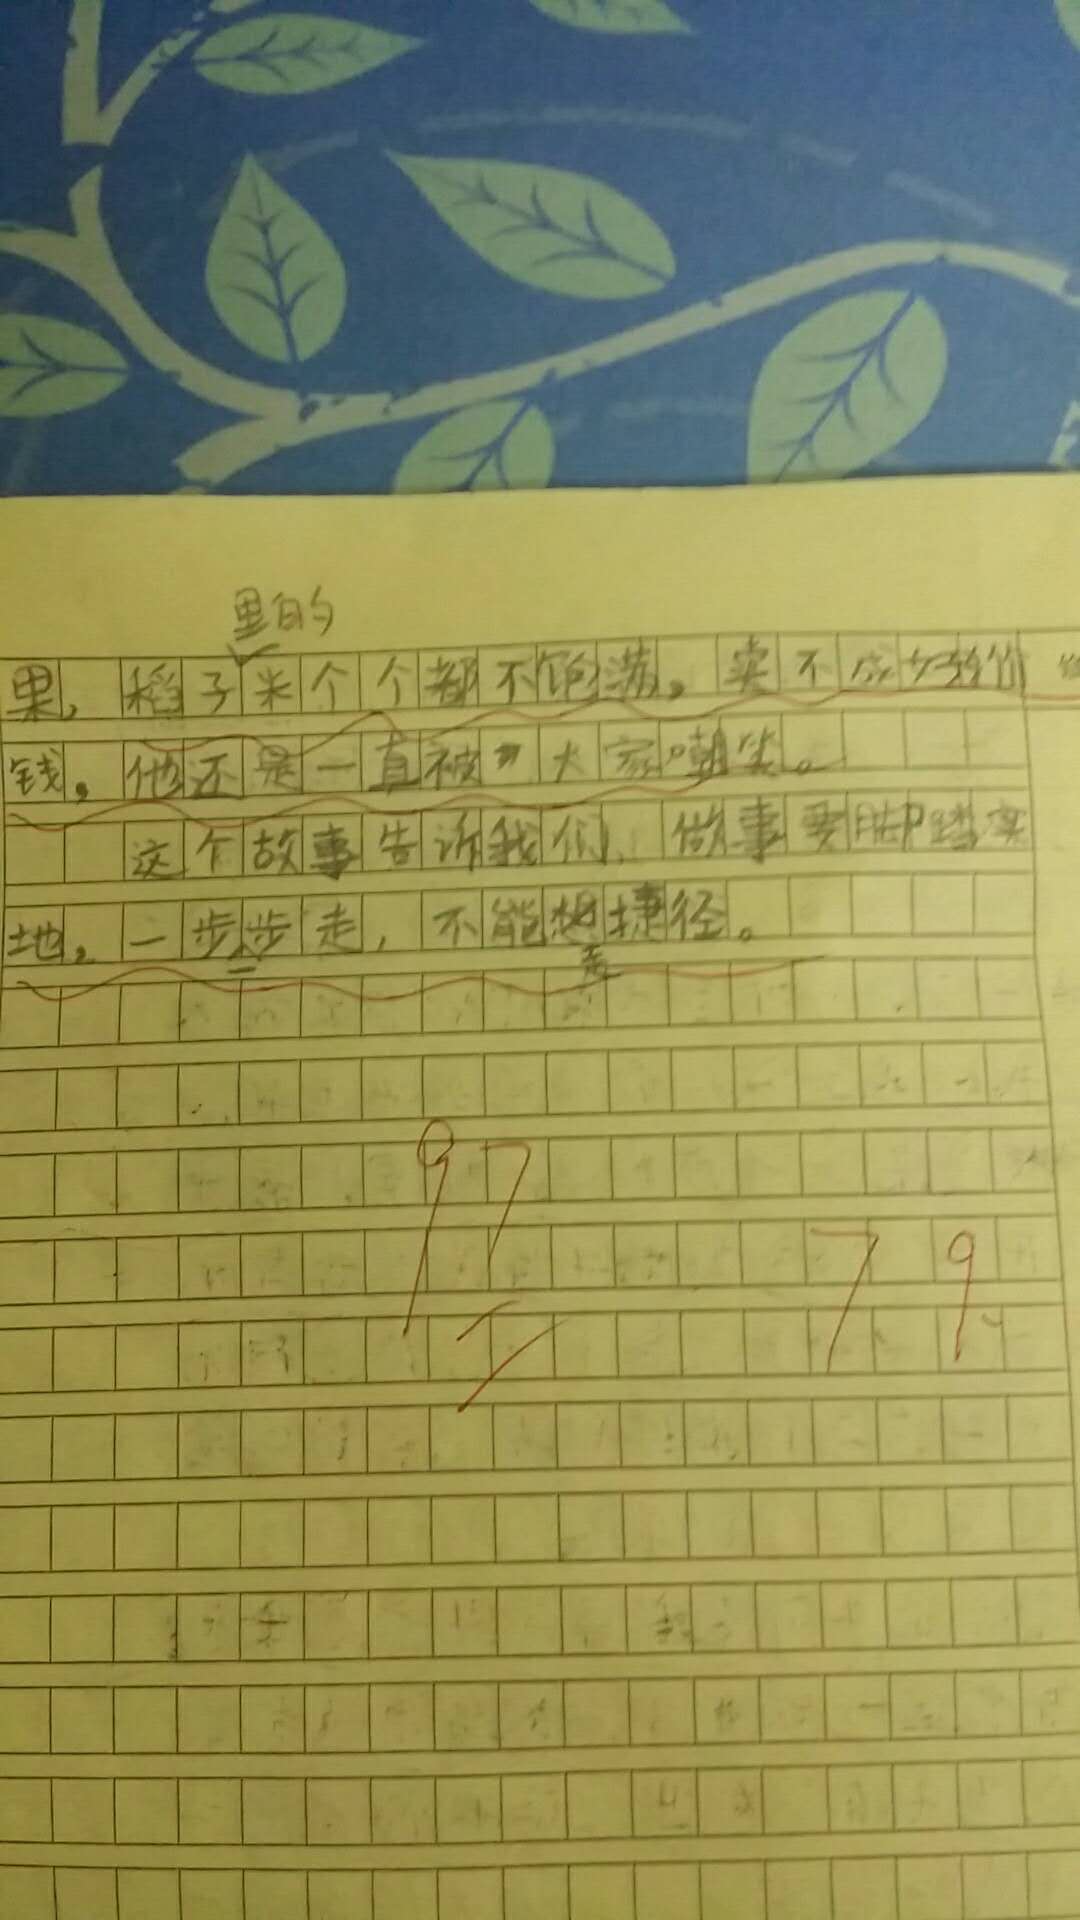 里的
果，稻子米个个都不饱满。卖不成好价
钱。他还是一直被大家嘲笑。
这个故事告诉我们，做事要脚踏实
地。一步步走，不能想捷径。
走
97
79